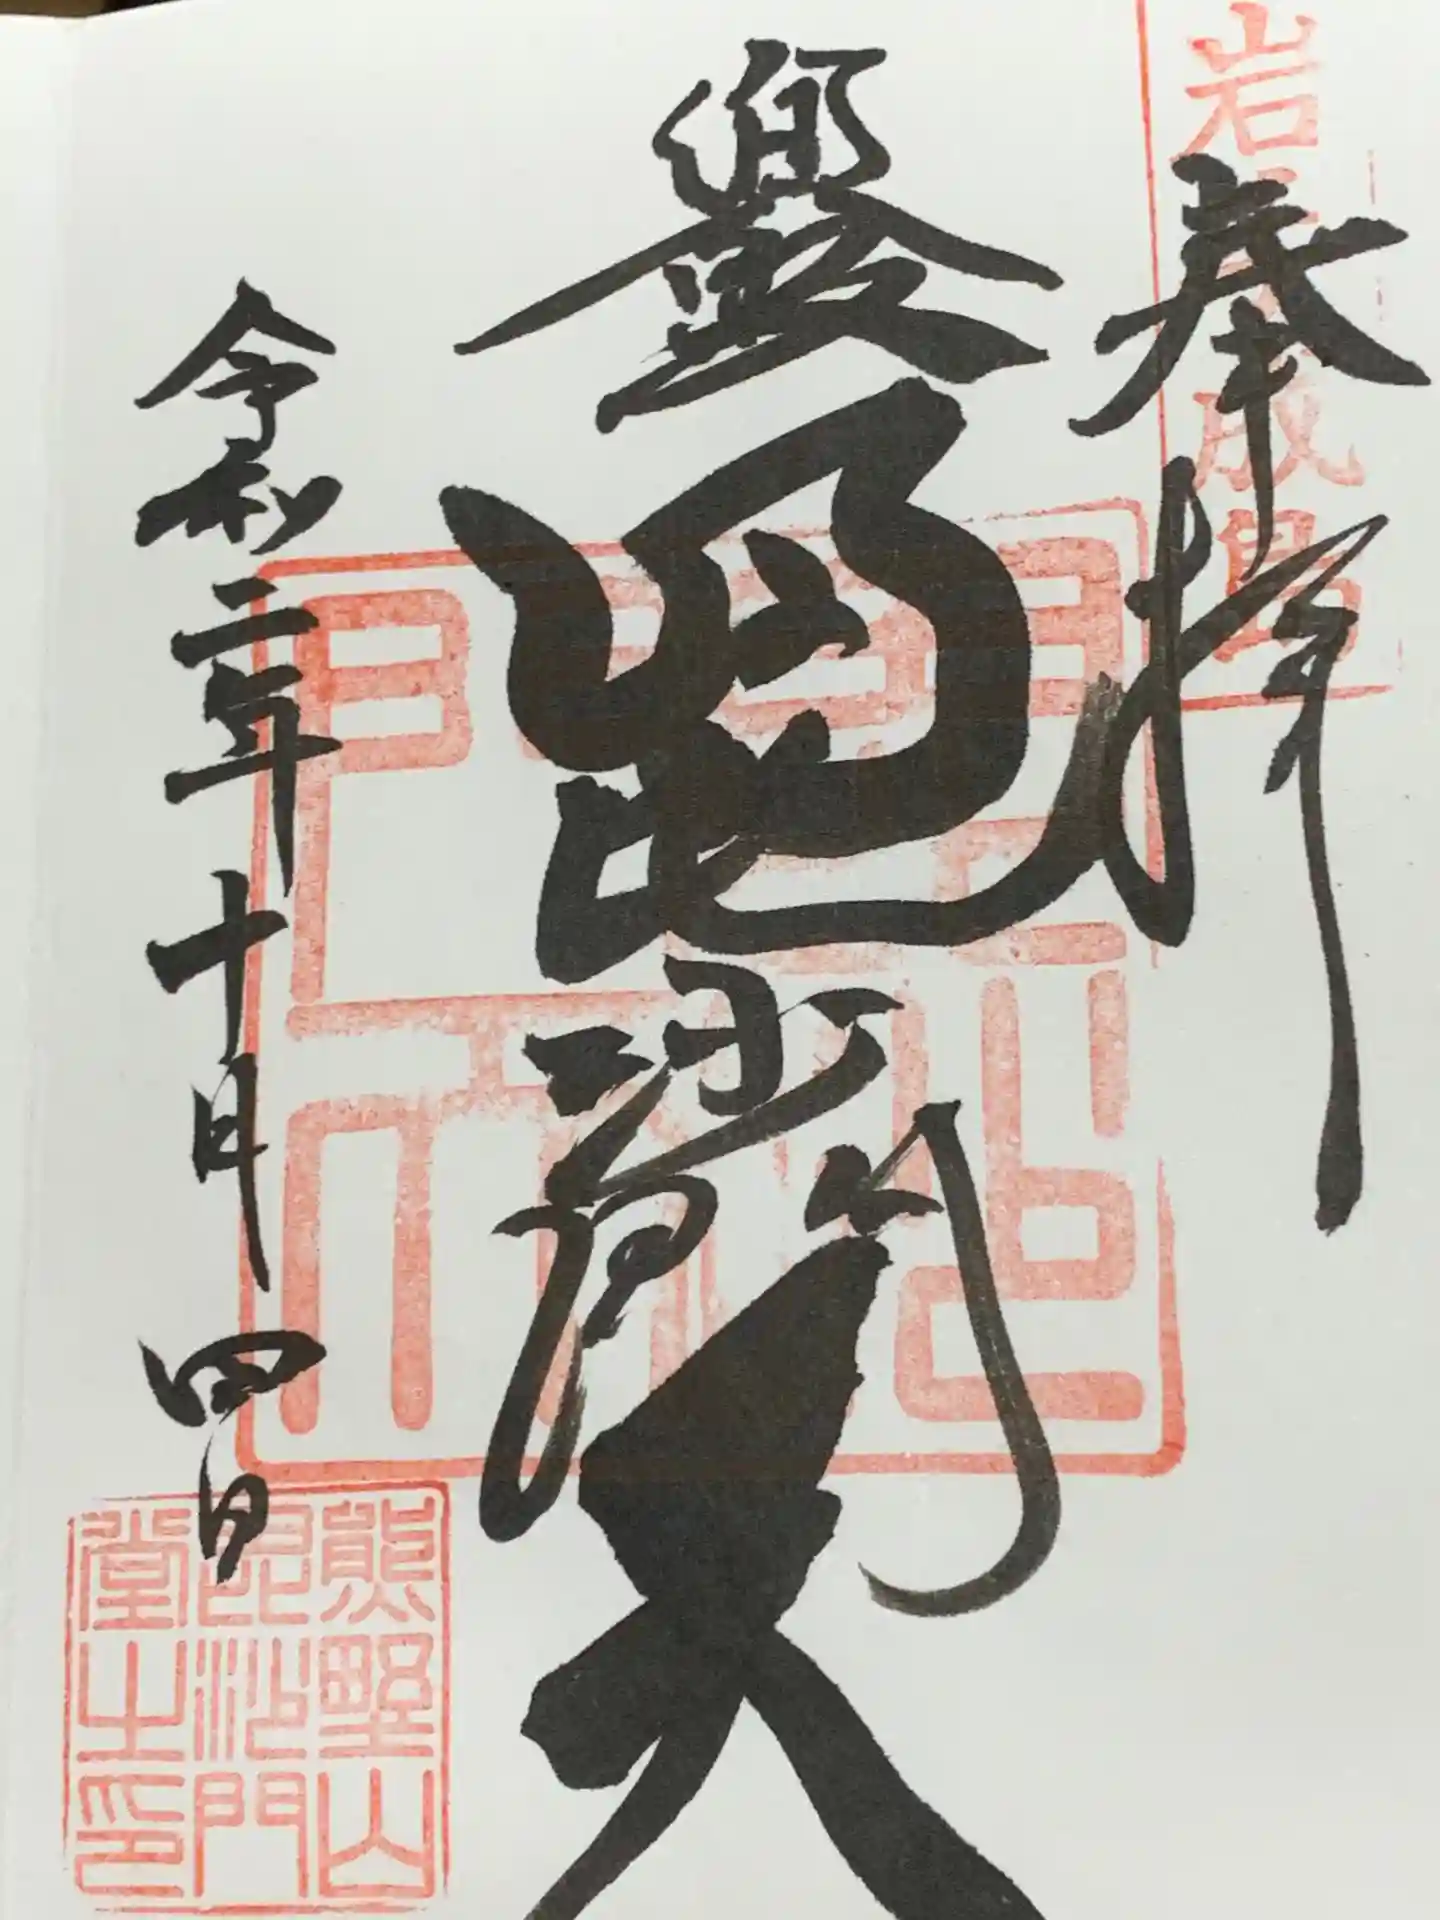 岩手成島
奉拝
毘沙門天
令和二年十月四日
熊野山
毘沙門
堂之印